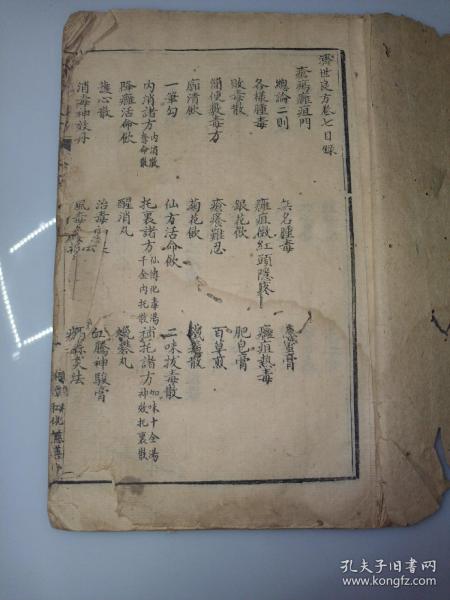 濟世良方卷七目錄
瘡瘍癰疽門
總論二則 無名腫毒
各樣腫毒 癰疽做紅頭隱疼
敗毒散 銀花飲 癰疽熱毒
簡便敷毒方 瘡疼難忍 肥皂膏
廓清飲 菊花飲 百草煎
一筆勾 仙方活命飲 二味拔毒散
內消諸方 內消散 奪命散 托裏諸方 仙傳化毒湯 千金內托散 補托諸方 加味十全湯 神效托裏散
降癰活命飲 醒消丸 蠟礬丸
護心散 治毒
消毒神效丹 風毒
孔夫子旧书网
www.kongfz.com